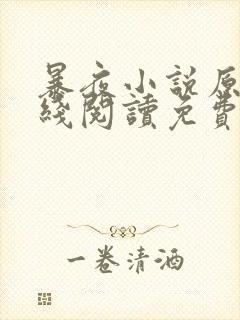 暴夜小說原
綫閱讀免費
一卷清酒